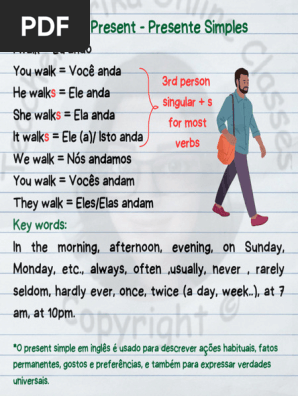 PDF
Present - Presente Simples
You walk = Você anda
He walks = Ele anda
She walks = Ela anda
It walks = Ele (a)/ Isto anda
3rd person
singular + s
for most
verbs
We walk = Nós andamos
You walk = Vocês andam
They walk = Eles/Elas andam
Key words:
In the morning, afternoon, evening, on Sunday,
Monday, etc., always, often ,usually, never , rarely
seldom, hardly ever, once, twice (a day, week..), at 7
am, at 10pm.
*O present simple em inglês é usado para descrever ações habituais, fatos
permanentes, gostos e preferências, e também para expressar verdades
universais.
Online Classes
Copyright ©